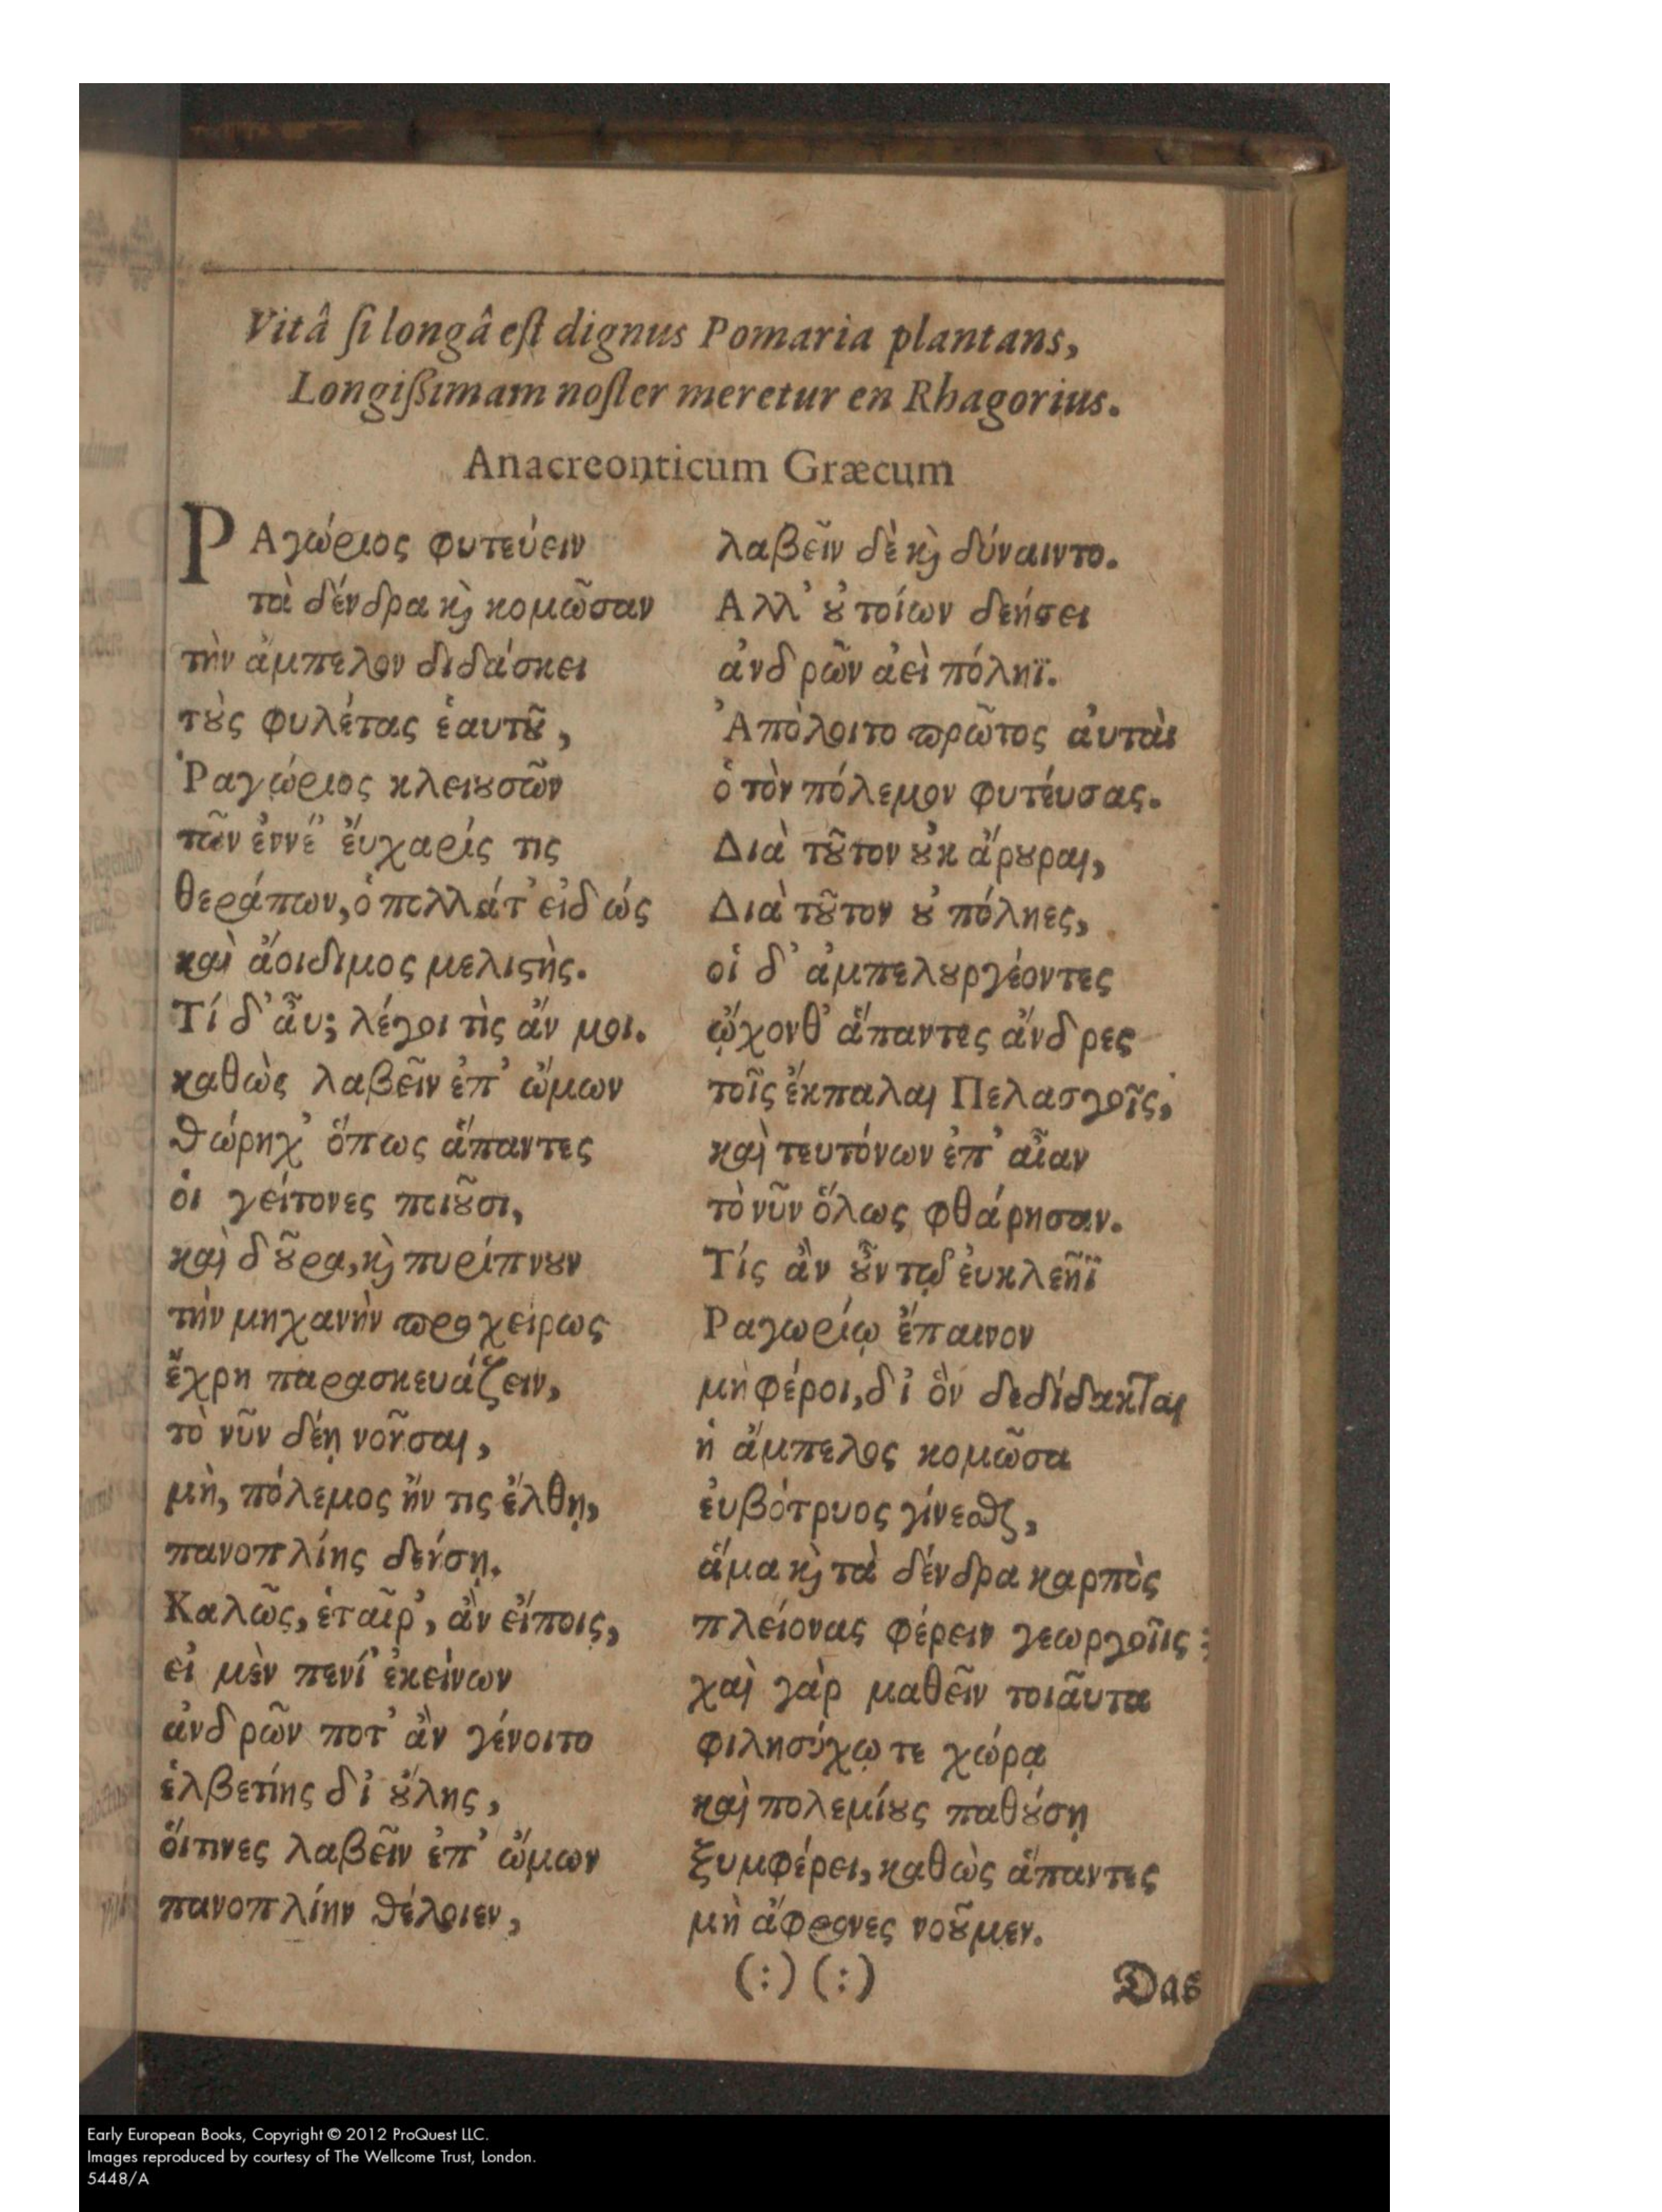 Vitâ ſi longâ eſt dignus Pomaria plantans,
Longiſsimam noſter meretur en Rhagorius.
Anacreonticum Græcum
ΡΑγώριος φυτεύειν
τὰ δένδρα κ̀ κομῶσαν
τὴν ἄμπελον διδάσκει
τȣ̀ς φυλέτας ἑαυτȣ͂,
Ῥαγώριος κλειȣσῶν
τῶν ἐννέ' ἔυχαρίς τις
θεράπων, ὁ πολλάτ' εἰδώς
καὶ ἄοιδιμος μελιϛὴς.
Τί δ' ἆυ; λέγοι τὶς ἄν μοι.
καθὼς λαβεῖν ἐπ' ὤμων
θώρηχ' ὅπως ἅπαντες
ὁι γείτονες ποιȣ͂σι,
καὶ δȣ͂ρα, κ̀ πυρίπνȣν
τὴν μηχανὴν προχείρως
ἔχρη παρασκευάζειν,
τὸ νῦν δέῃ νοῆσαι,
μὴ, πόλεμος ἤν τις ἔλθῃ,
πανοπλίης δεήσῃ.
Καλῶς, ἑταῖρ', ἂν εἴποις,
εἰ μὲν πενί' ἐκείνων
ἀνδρῶν ποτ' ἂν γένοιτο
ἑλβετίης δι' ȣ̔́λης,
ὅιτινες λαβεῖν ἐπ' ὤμων
πανοπλίην θέλοιεν,
λαβεῖν δὲ κ̀ δύναιντο.
Αλλ' ȣ̓ τοίων δεήσει
ἀνδρῶν ἀεὶ πόληϊ.
Ἀπόλοιτο πρῶτος ἀυτὰς
ὁ τὸν πόλεμον φυτέυσας.
Διὰ τȣ͂τον ȣ̓κ ἄρȣραι,
Διὰ τȣ͂τον ȣ̓ πόληες,
οἱ δ' ἀμπελȣργέοντες
ᾤχονθ' ἅπαντες ἄνδρες
τοῖς ἔκπαλαι Πελασγοῖς,
καὶ τευτόνων ἐπ' αἶαν
τὸ νῦν ὅλως φθάρησαν.
Τίς ἂν ȣ̓͂ν τῷδ' ἐυκλεῆϊ
Ραγωρίῳ ἔπαινον
μὴ φέροι, δι' ὃν δεδίδακται
ἡ ἄμπελος κομῶσα
ἐυβότρυος γίνεσθαι,
ἅμα κ̀ τὰ δένδρα καρπὸς
πλείονας φέρειν γεωργοῖις:
χαὶ γὰρ μαθεῖν τοιᾶυτα
φιλησύχῳ τε χώρᾳ
καὶ πολεμίȣς παθȣ́σῃ
ξυμφέρει, καθὼς ἅπαντες
μὴ ἄφρονες νοȣ͂μεν.
(:) (:)
Das
Early European Books, Copyright © 2012 ProQuest LLC.
Images reproduced by courtesy of The Wellcome Trust, London.
5448/A